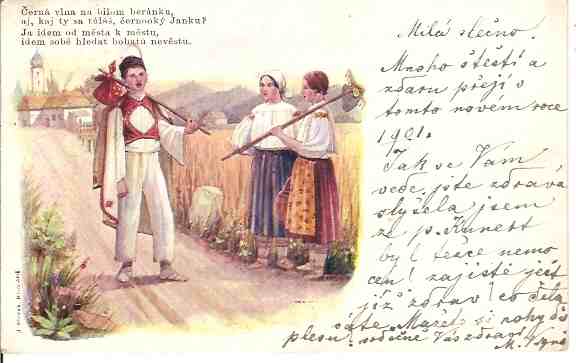 Černá vlna na bílom beránku,
aj, kaj ty sa túláš, černooký Janku?
Ja idem od města k městu,
idem sobě hledat bohatú nevěstu.
Milá slečno.
Mnoho štěstí a
zdaru přeji v
tomto novém roce
1901.
Jak se Vám
vede, jste zdravá
slyšela jsem
že p.
by! těžce nemo
cen! zajisté jest
již zdráv! co dělá
si nohy do
plesu. srdečně Vás zdraví
M.